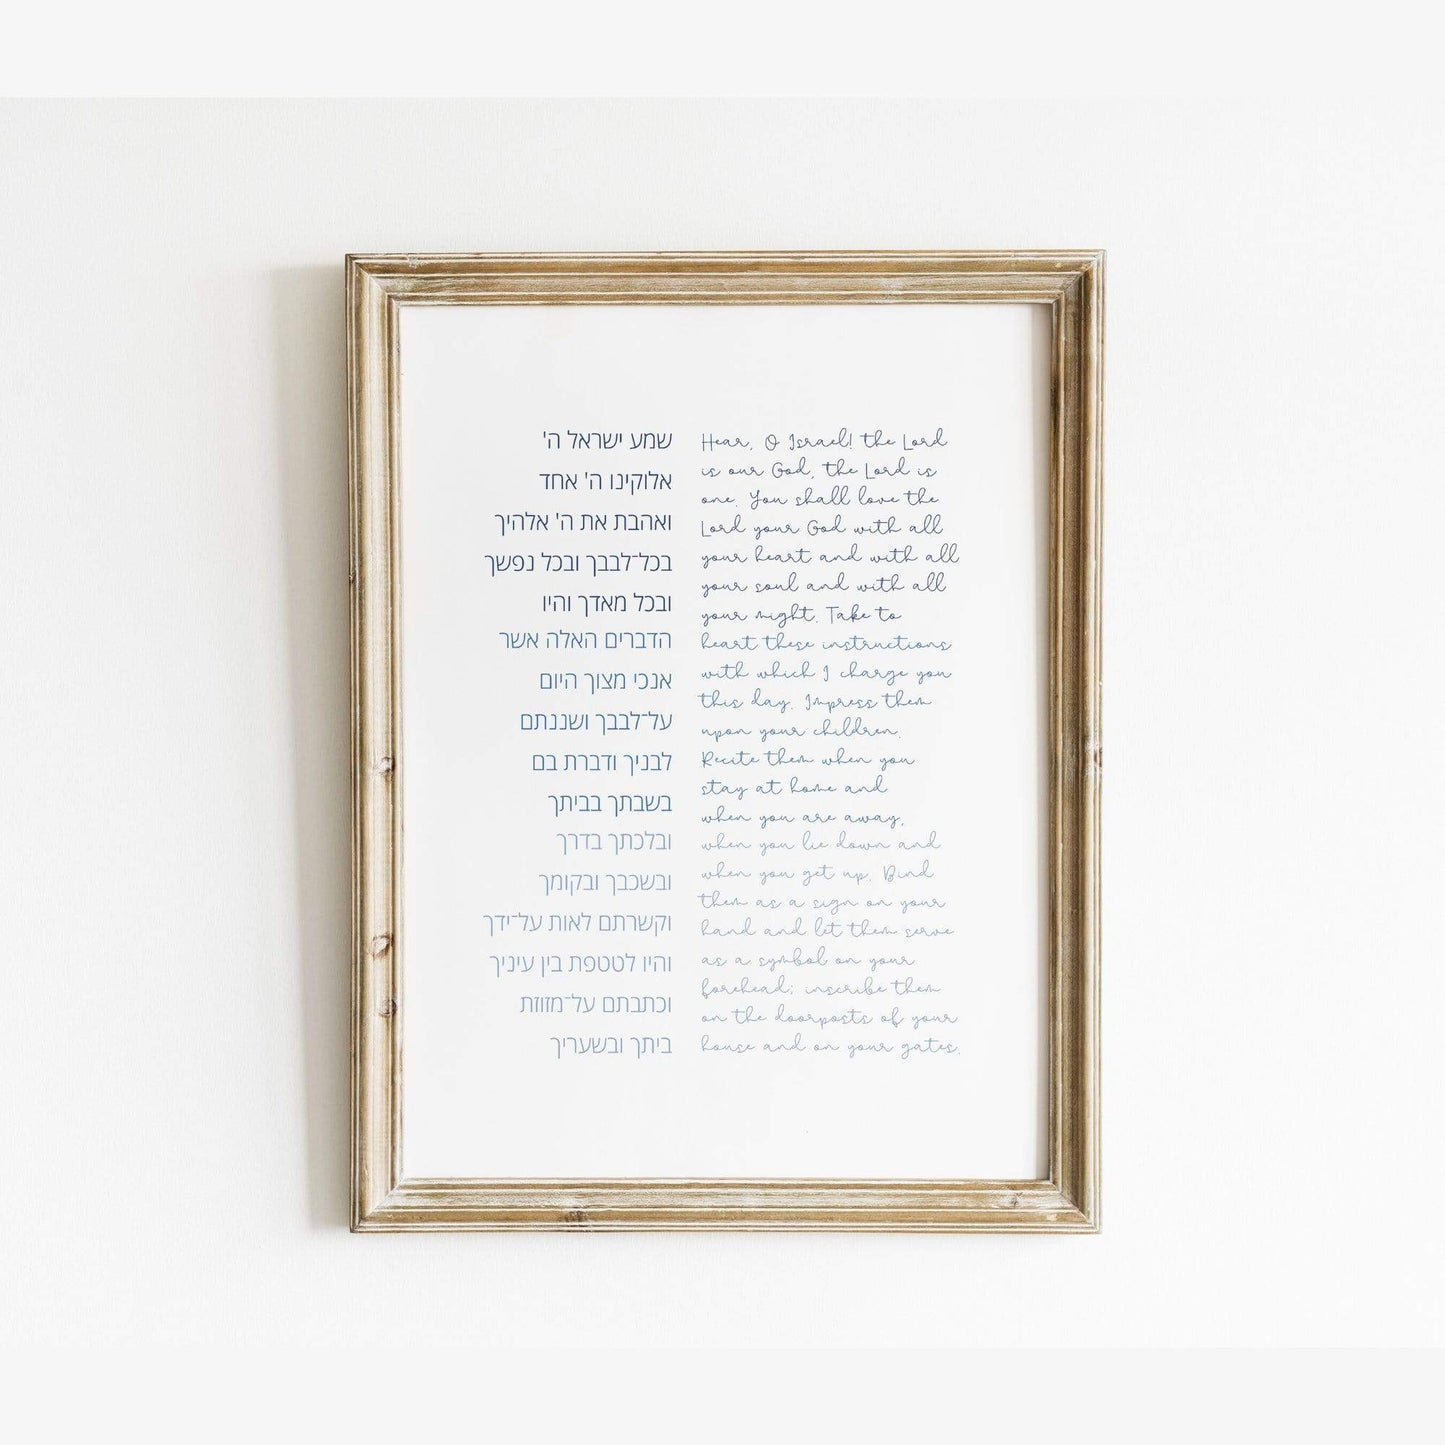 שמע ישראל ה'
אלוקינו ה' אחד
ואהבת את ה' אלהיך
בכל־לבבך ובכל נפשך
ובכל מאדך והיו
הדברים האלה אשר
אנכי מצוך היום
על־לבבך ושננתם
לבניך ודברת בם
בשבתך בביתך
ובלכתך בדרך
ובשכבך ובקומך
וקשרתם לאות על־ידך
והיו לטטפת בין עיניך
וכתבתם על־מזוזת
ביתך ובשעריך
Hear, O Israel! the Lord
is our God, the Lord is
one. You shall love the
Lord your God with all
your heart and with all
your soul and with all
your might. Take to
heart these instructions
with which I charge you
this day. Impress them
upon your children.
Recite them when you
stay at home and
when you are away,
when you lie down and
when you get up. Bind
them as a sign on your
hand and let them serve
as a symbol on your
forehead; inscribe them
on the doorposts of your
house and on your gates.